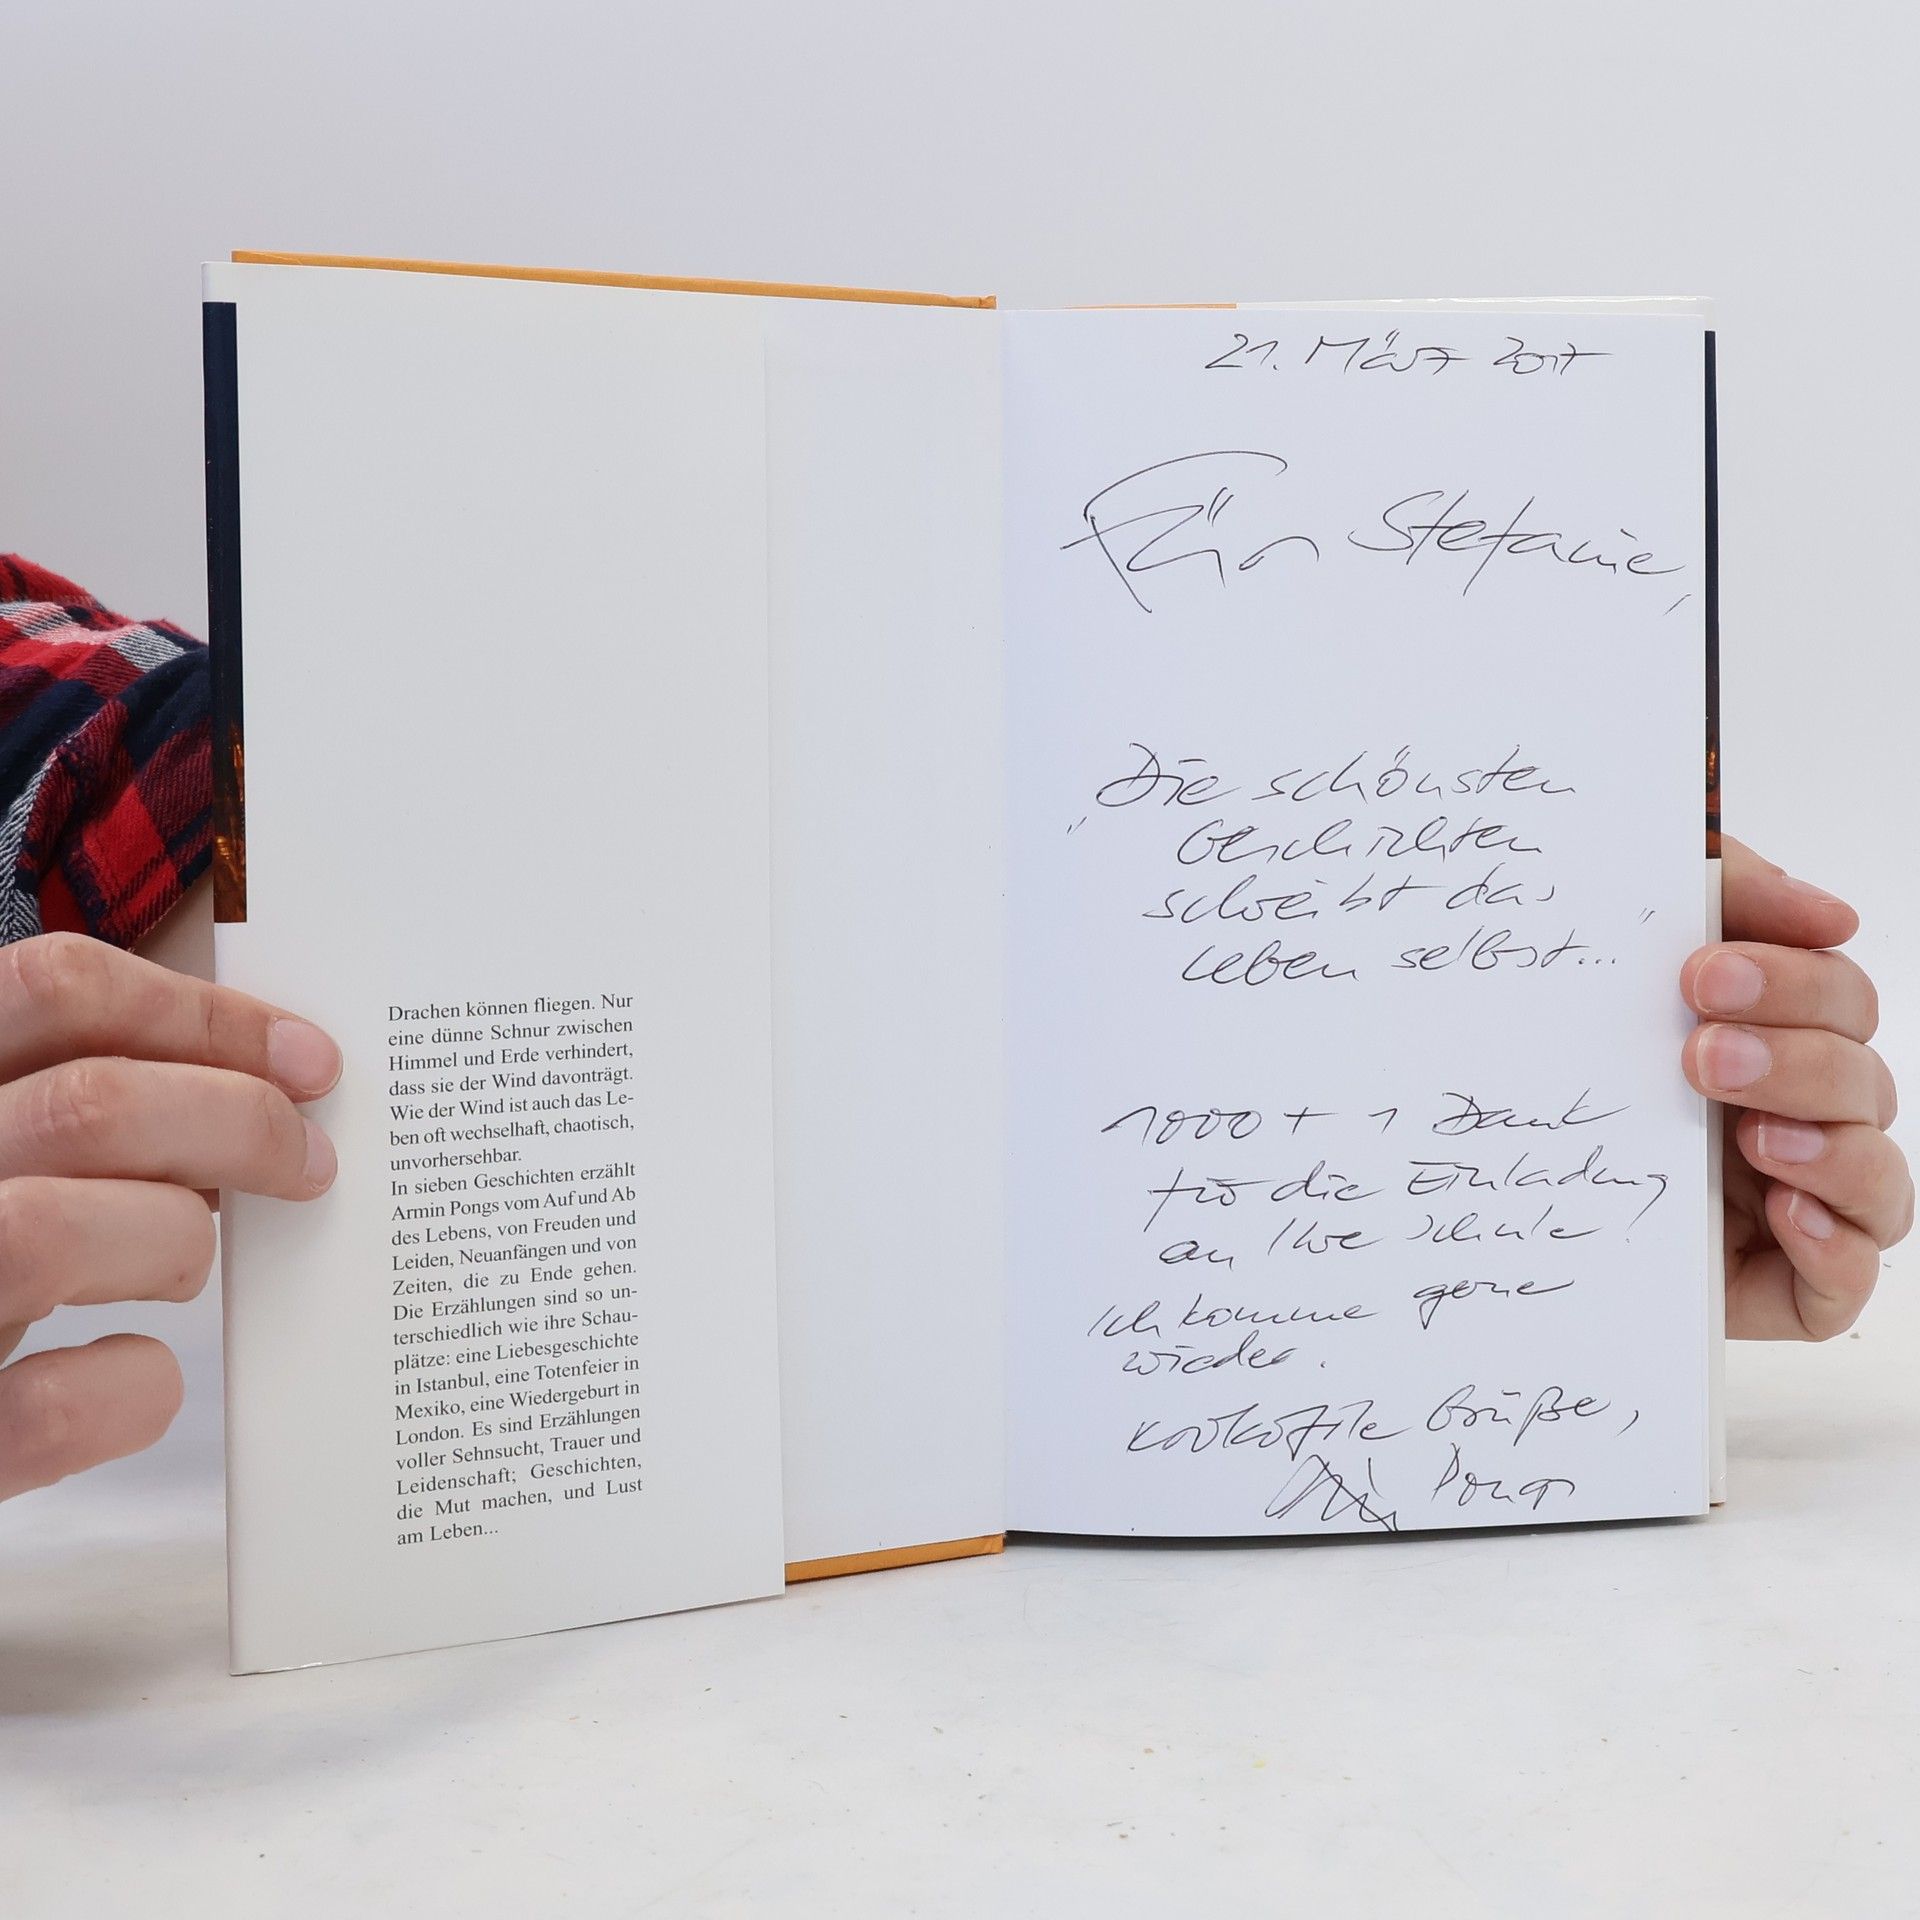 Drachen können fliegen. Nur
eine dünne Schnur zwischen
Himmel und Erde verhindert,
dass sie der Wind davonträgt.
Wie der Wind ist auch das Le-
ben oft wechselhaft, chaotisch,
unvorhersehbar.
In sieben Geschichten erzählt
Armin Pongs vom Auf und Ab
des Lebens, von Freuden und
Leiden, Neuanfängen und von
Zeiten, die zu Ende gehen.
Die Erzählungen sind so un-
terschiedlich wie ihre Schau-
plätze: eine Liebesgeschichte
in Istanbul, eine Totenfeier in
Mexiko, eine Wiedergeburt in
London. Es sind Erzählungen
voller Sehnsucht, Trauer und
Leidenschaft; Geschichten,
die Mut machen, und Lust
am Leben...
21. März 2017
Für Stefanie,
"Die schönsten
Geschichten
schreibt das
Leben selbst..."
1000 + 1 Dank
für die Einladung
an Ihre Schule!
Ich komme gerne
wieder.
Krokofile Grüße,
Armin Pongs